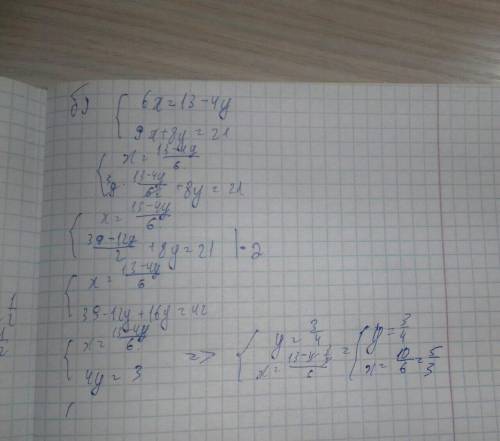 б) { 6x = 13 - 4y
9x + 8y = 21
{ x = (13-4y)/6
9 · (13-4y)/6 + 8y = 21
{ x = (13-4y)/6
(39-12y)/2 + 8y = 21 | · 2
{ x = (13-4y)/6
39 - 12y + 16y = 42
{ x = (13-4y)/6
4y = 3
=> { y = 3/4
x =
= { y = 3/4
x = 10/6 = 5/3
{
1/2
1/2